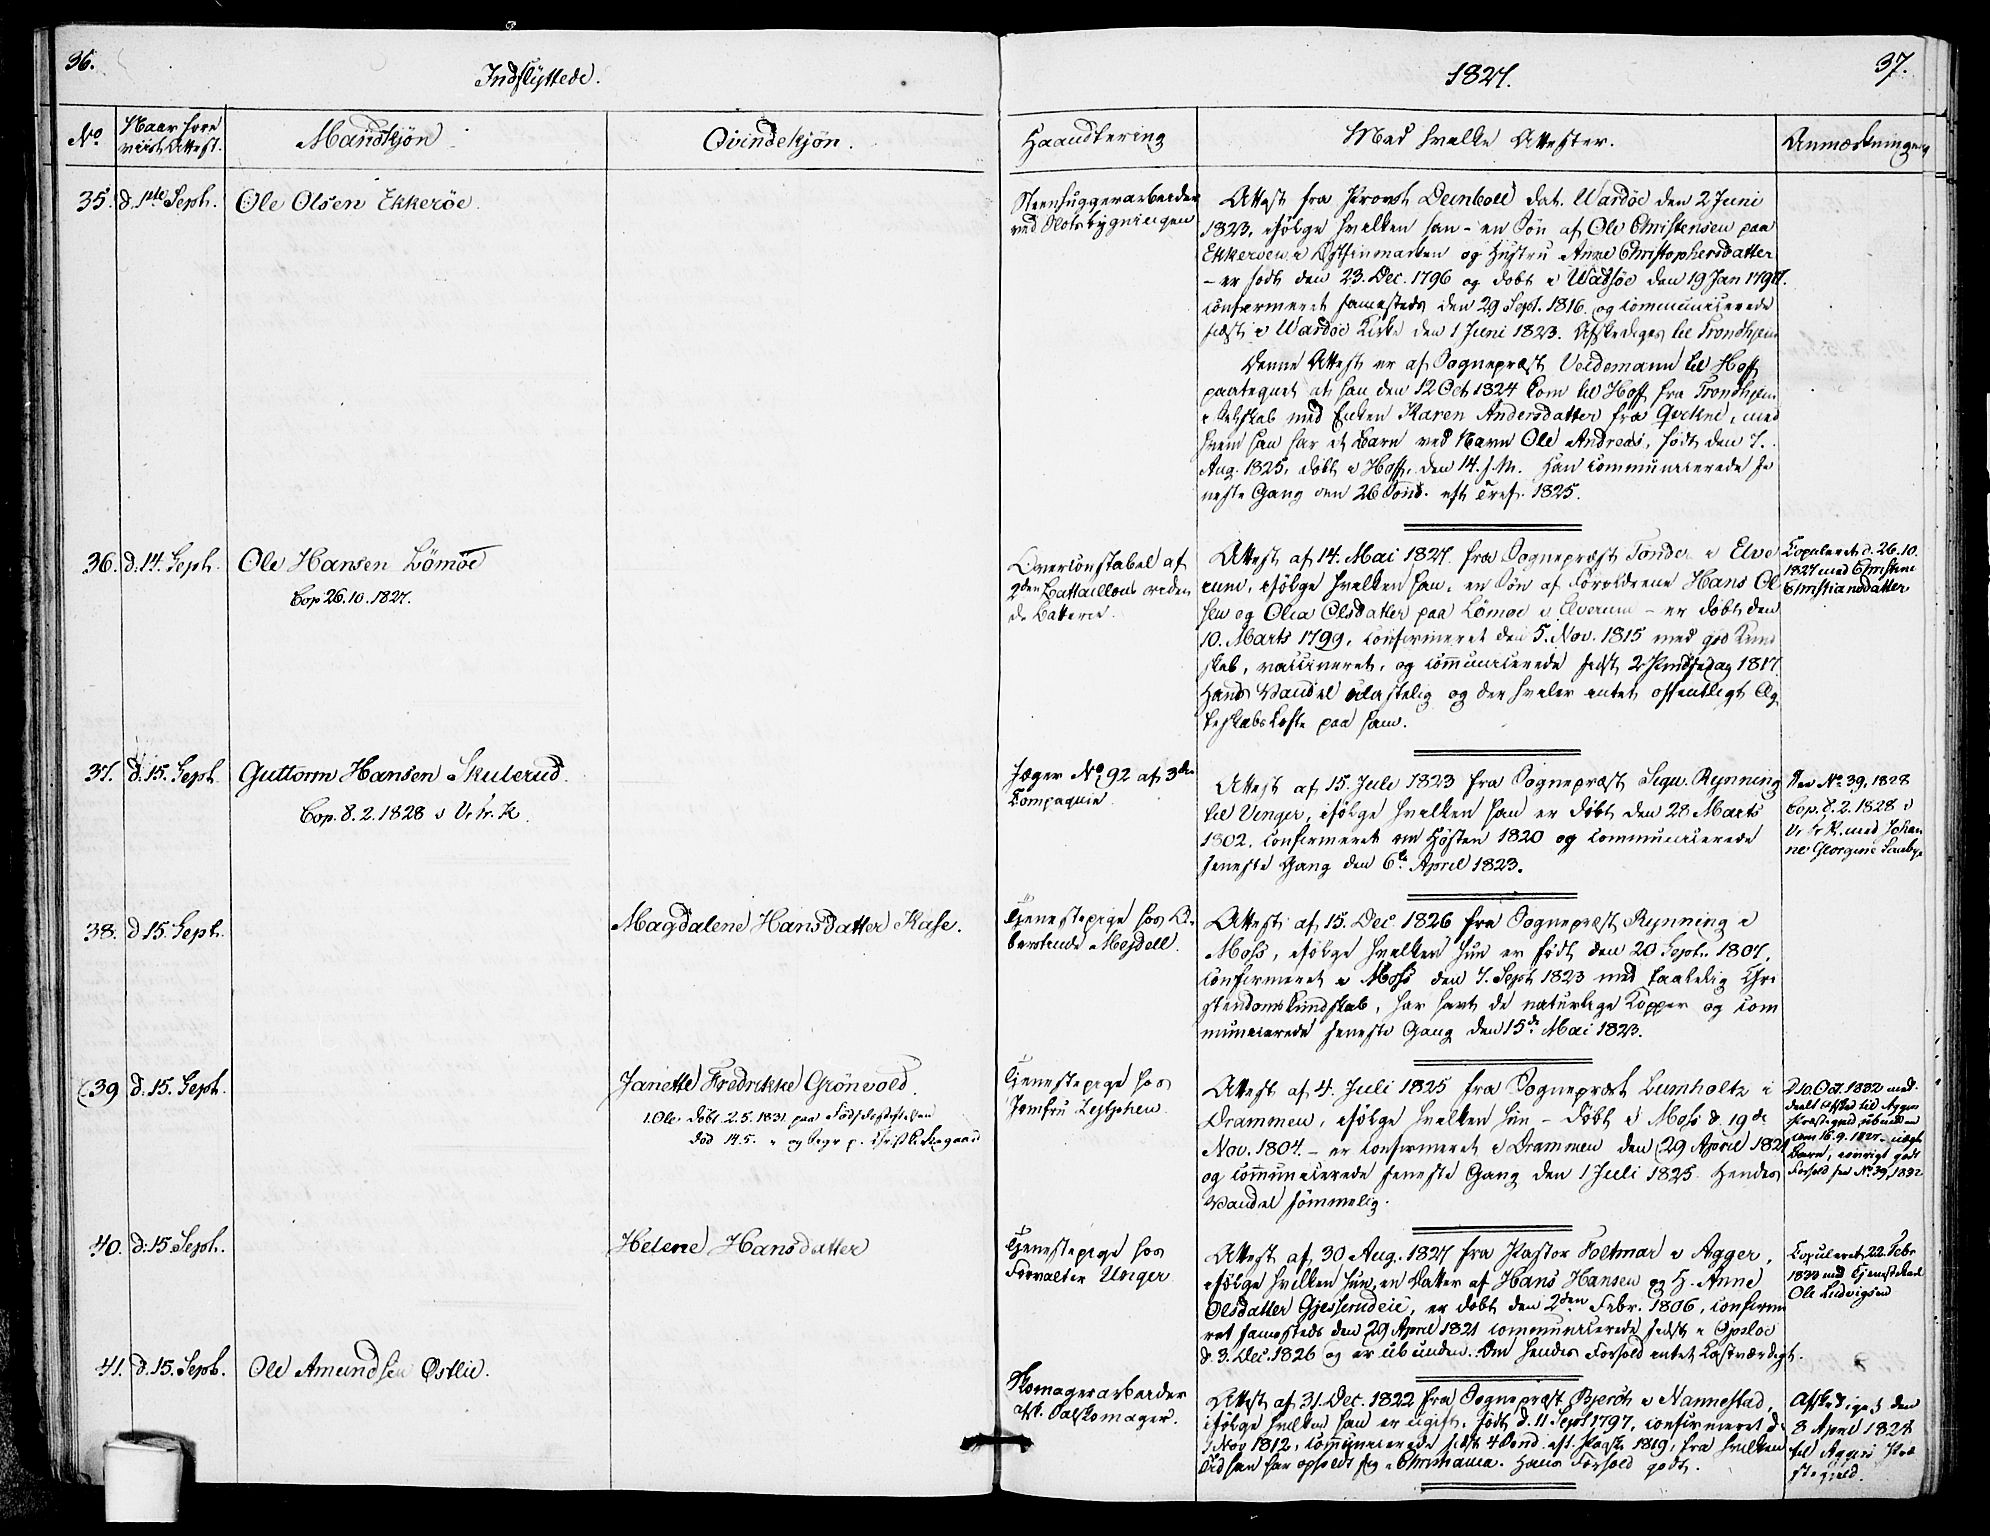 36.
Indflyttede.
No
Naar fore
viist Attest.
Mandkjøn
Qvindekjøn.
35. d. 1ste Septr. Ole Olsen Ekkerøe.
36. d. 14. Septr. Ole Hansen Lömöe
Cop 26.10.1827.
37. d. 15. Septr Guttorm Hansen Skulerud.
Cop. 8.2.1828 i Vr. Fr. K.
38. d 15. Septr. Magdalene Hansdatter Kase.
39 d. 15. Septr. Janette Fredrikke Grönvold.
1. Ole Döbt 2.5.1831 paa Födselsstiftelsen
Död 14.5.
40. d. 15 Septr. Helene Hansdatter
41. d. 15. Septr. Ole Amundsen Østlie.
1827.
37.
Haandtering
Med hvilke Attester.
Anmærkninger
Steenhuggerarbeider
ved Slotsbygningen
Attest fra Provst Deinboll dat. Wardöe den 2 Juni
1823, ifölge hvilken han – en Sön af Ole Christensen paa
Ekkeröen i Østfinmarken og Hustru Anne Christophersdatter
– er födt den 23. Dec. 1796 og döbt i Wadsöe den 19 Jan 1797.
confirmeret sammesteds den 29 Sept. 1816. og communicerede
sidst i Wardöe Kirke den 1 Juni 1823. Afskediges til Trondhjem
Denne Attest er af Sognepræst Veidemann til Hoff
paategnet at han den 12 Oct 1824 kom til Hoff fra Trondhjem
i Selskab med Enken Karen Andersdatter fra Qvikne, med
hvem han har et Barn ved Navn Ole Andreas, födt den 7.
Aug. 1825, döbt i Hoff, den 14. s. M. Han communicerede se
neste Gang den 26 Sönd. eft Tref. 1825.
Overconstabel af
2den Battaillons ridende
Batterie.
Attest af 14. Mai 1827. fra Sognepræst Tonde i Elve
rum, ifölge hvilken han, en Sön af Forældrene Hans Ol
sen og Olia Olsdatter paa Lömoe i Elverum – er döbt den
10. Marts 1799, confirmeret den 5. Nov. 1815 med god Kund
skab, vaccineret, og communicerede sidst 2 Pindsedag 1817.
Hans Vandel ulastelig og der hviler intet offentligt Æg
teskabs Löfte paa ham.
Copuleret d. 26.10.
1827 med Christine
Christiansdatter
Jæger No 92 af 3die
Compagnie.
Attest af 15. Juli 1823 fra Sognepræst Sigw. Rynning
til Vinger, ifölge hvilken han er döbt den 28 Marts
1802, confirmeret om Hösten 1820 og communicerede
seneste Gang den 6te April 1823.
See No 39, 1828
Cop. 8.2.1828 i
Vr Fr K. med Johan
ne Georgine
Tjenestepige hos O-
berstinde Mejdell.
Attest af 15. Dec. 1826 fra Sognepræst Rynning i
Moss, ifölge hvilken hun er födt den 20 Septr. 1807,
confirmeret i Moss den 7. Sept 1823 med taalelig Chri
stendomskundskab, har havt de naturlige Kopper og com
municerede seneste Gang den 15de Mai 1823.
Tjenestepige hos
Jomfru
Attest af 4. Juli 1825 fra Sognepræst Lumholtz i
Drammen, ifölge hvilken hun – döbt i Moss d. 19de
Nov. 1804. – er confirmeret i Drammen den 29 April 1821
og communicerede seneste Gang den 1 Juli 1825. Hendes
Vandel sömmelig.
D. 10. Oct. 1832 med-
deelt Afsked til Agger
Præstegjeld ubunden
Barn, iövrigt godt
Forhold see No. 39, 1832
Tjenestepige hos
Forvalter Unger
Attest af 30 Aug. 1827 fra Pastor Foltmar i Agger,
ifölge hvilken hun, en Datter af Hans Hansen og H. Anne
Olsdatter Gjesserudeie, er döbt den 2den Febr. 1806, confirme
ret sammesteds den 29 April 1821 communicerede sidst i Opsloe
d. 3. Dec. 1826 og er ubunden. Om hendes Forhold intet Lastværdigt.
Copuleret 22. Febr
1833 med Tjenestekarl
Ole Ludvigsen
Skomagerarbeider
Attest af 31. Dec. 1822 fra Sognepræst Bjersch i Nannestad,
ifölge hvilken han er ugift, födt d. 11 Sept 1797, confirmeret d.
1 Nov 1812, communicerede sidst 4 Sönd. eft. Paaske 1819, fra hvilken
Tid han har opholdt sig i Christiania. Hans Forhold godt.
Afskediget den
8 April 1828
til Aggers Præ
stegjeld.